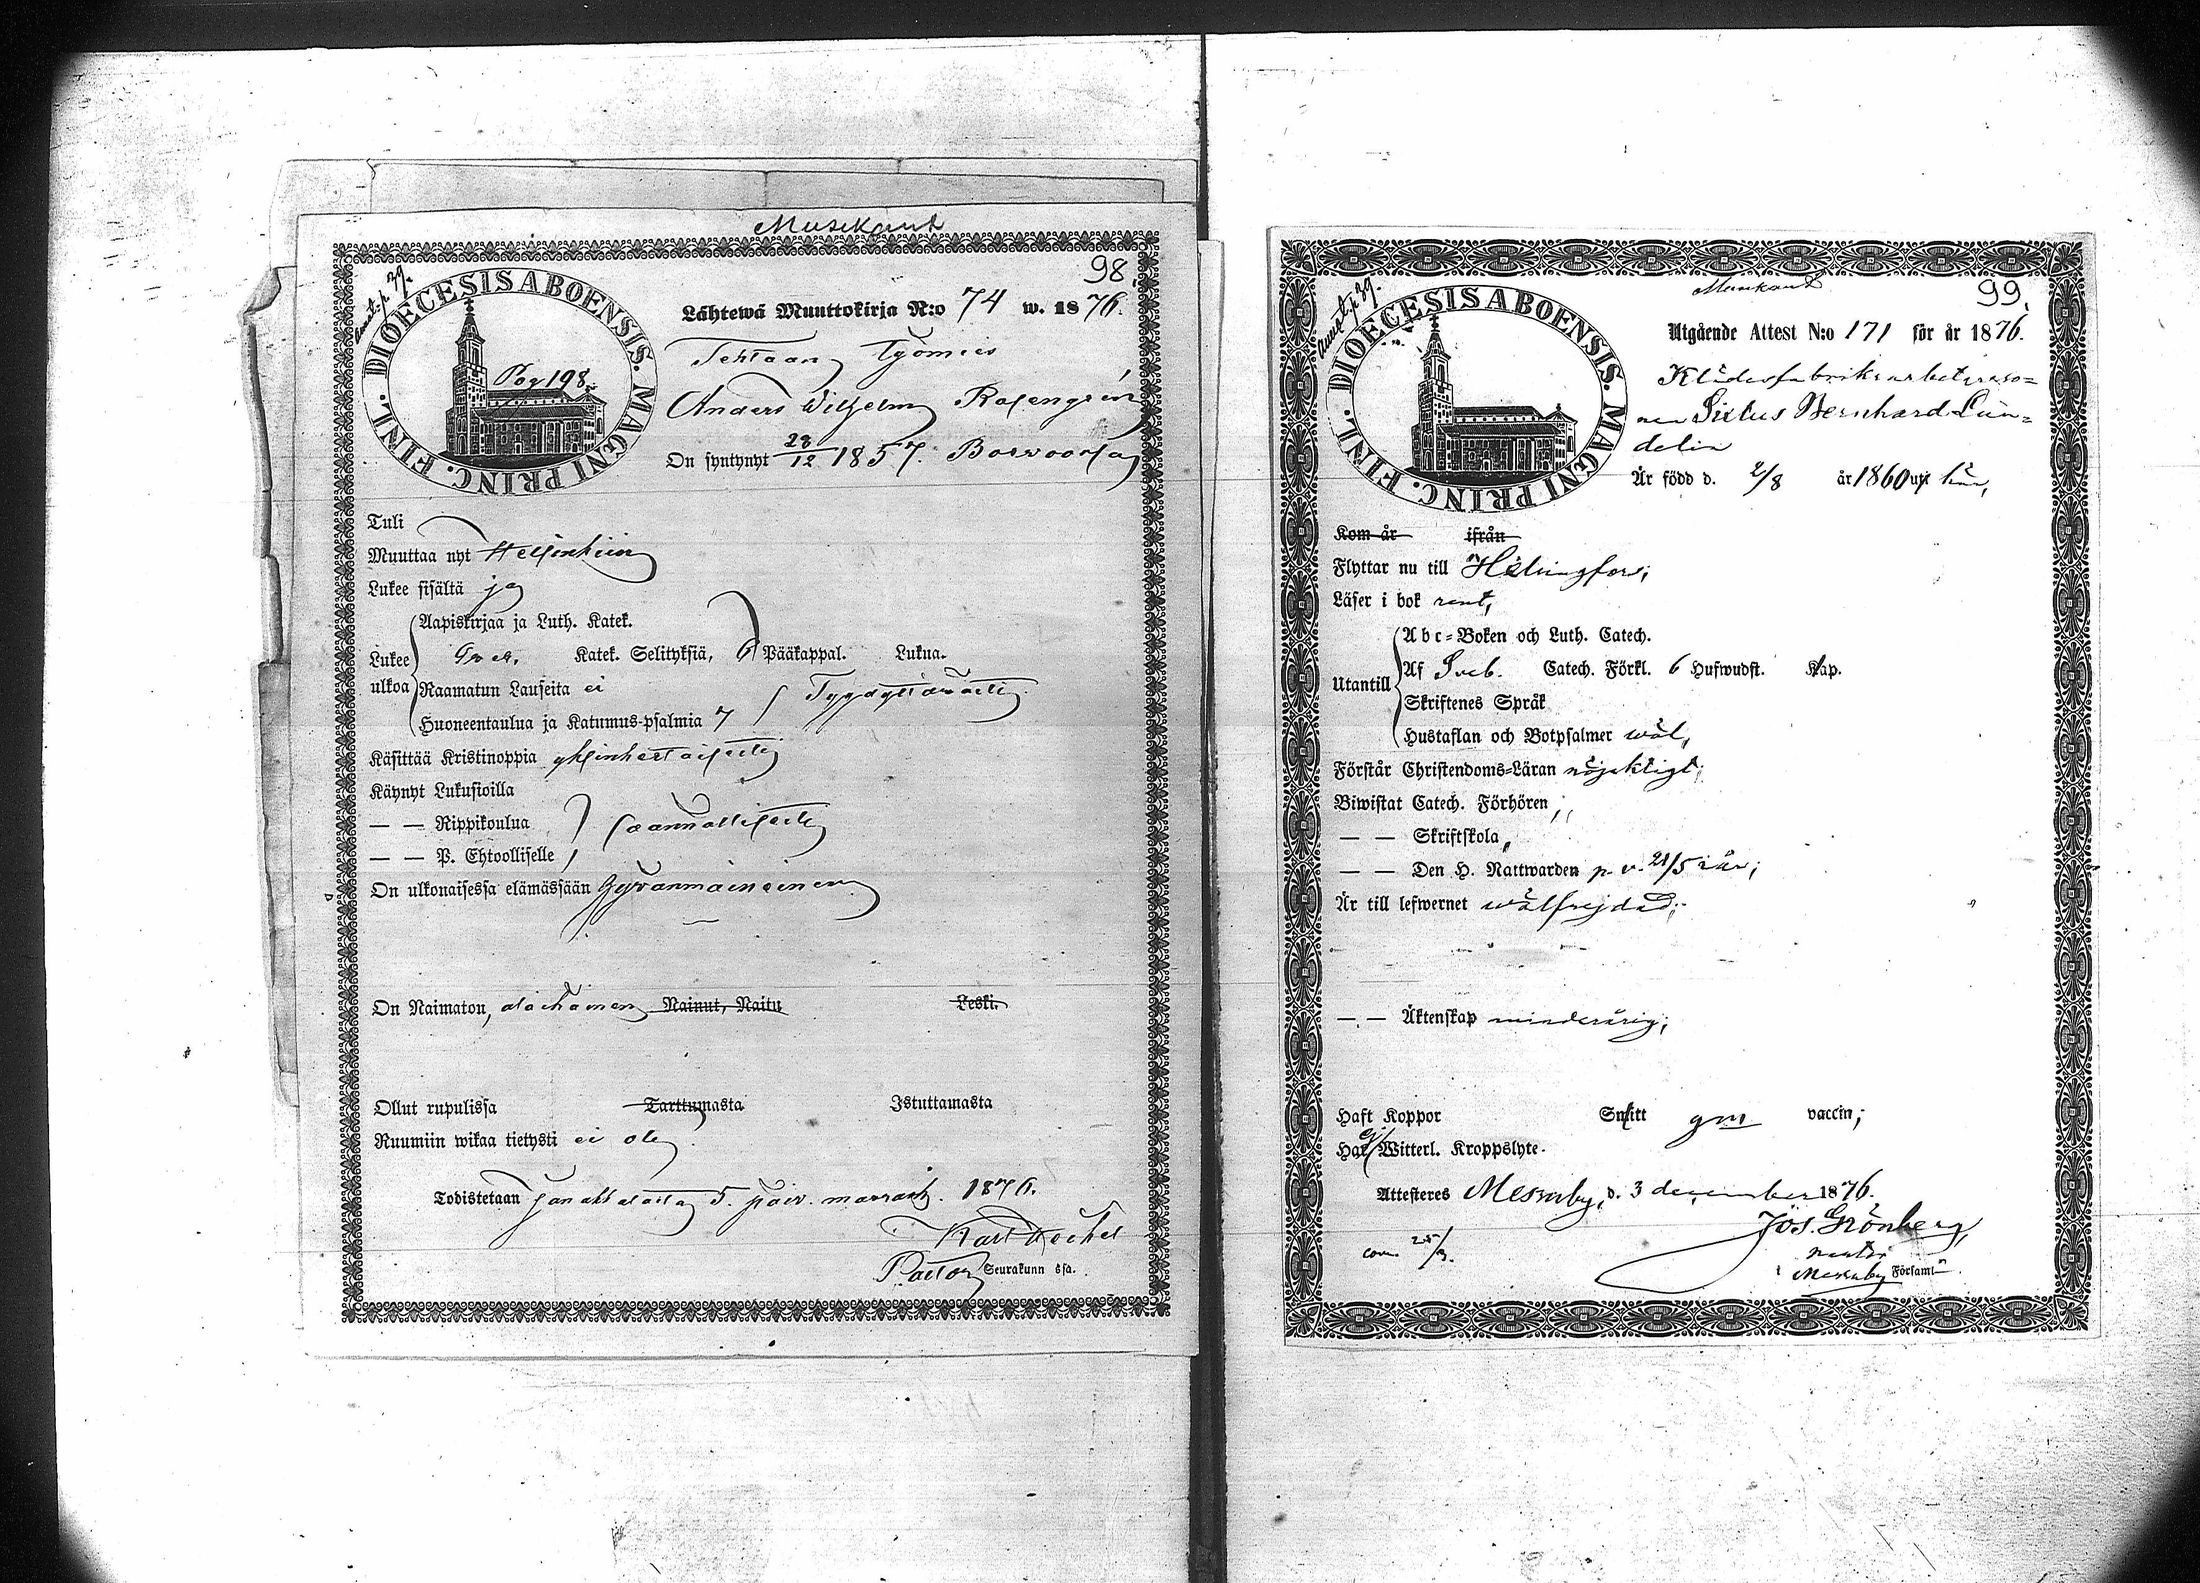 Musikant
98.
Amst. p. 39.
DIOECESIS ABOENSIS. MAGNI PRINC. FINL.
Pag 198.
Lähtewä Muuttokirja N:o 74 w. 1876.
Tehtaan Työmies
Anders Wilhelm Rosengrén
On syntynyt 28/12 1857.
Tuli
Muuttaa nyt Helsinkiin
Lukee sisältä ja
Aapiskirjaa ja Luth. Katek.
Lukee Sveb. Katek. Selityksiä, 6 Pääkappal. Lukua.
ulkoa Raamatun Lauseita ei Tyydyttäwästi
Huoneentaulua ja Katumus-psalmia 7
Käsittää Kristinoppia yksinkertaisesti
Käynyt Lukusioilla
— — Rippikoulua säännöllisesti
— — P. Ehtoolliselle
On ulkonaisessa elämässään hywänmaineinen
On Naimaton, alaikäinen Nainut, Naitu Leski.
Ollut rupulissa Tarttumasta Istuttamasta
Ruumiin wikaa tietysti ei ole
Todistetaan Janakkalasta 5. päiv. marrask. 1876.
Pastor Seurakunn ssa.
Musikant
99.
Amst. p. 39.
DIOECESIS ABOENSIS. MAGNI PRINC. FINL.
Utgående Attest N:o 171 för år 1876.
Klädesfabriksarbetareso=
nen Sixtus Bernhard Lin=
delin
Är född d. 2/8 år 1860 uti här,
Kom år ifrån
Flyttar nu till Helsingfors;
Läser i bok rent,
Abc=Boken och Luth. Catech.
Utantill Af Sveb. Catech. Förkl. 6 Hufwudst. Kap.
Skriftenes Språk
Hustaflan och Botpsalmer wäl,
Förstår Christendoms=Läran nöjaktigt;
Biwistat Catech. Förhören
— — Skriftskola
— — Den H. Nattwarden p. v. 21/5 i år;
Är till lefwernet wälfrejdad;
— — Äktenskap minderårig;
Haft Koppor Snitt gm vaccin;
Har ej Witterl. Kroppslyte.
Attesteras Messuby, d. 3 december 1876.
Jos. Grönberg,
com. 25/9.
i Messuby Församl